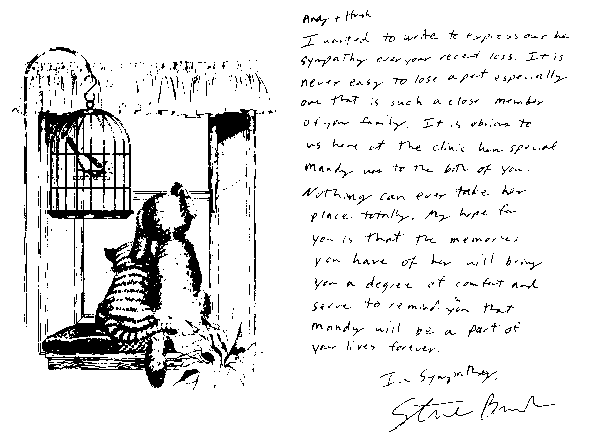 Andy +
I wanted to write to express our
sympathy over your recent loss. It is
never easy to lose a pet especially
one that is such a close member
of your family. It is obvious to
us here at the clinic how special
Mandy was to the both of you.
Nothing can ever take her
place totally. My hope for
you is that the memories
you have of her will bring
you a degree of comfort and
serve to remind you that
Mandy will be a part of
your lives forever.
In Sympathy,